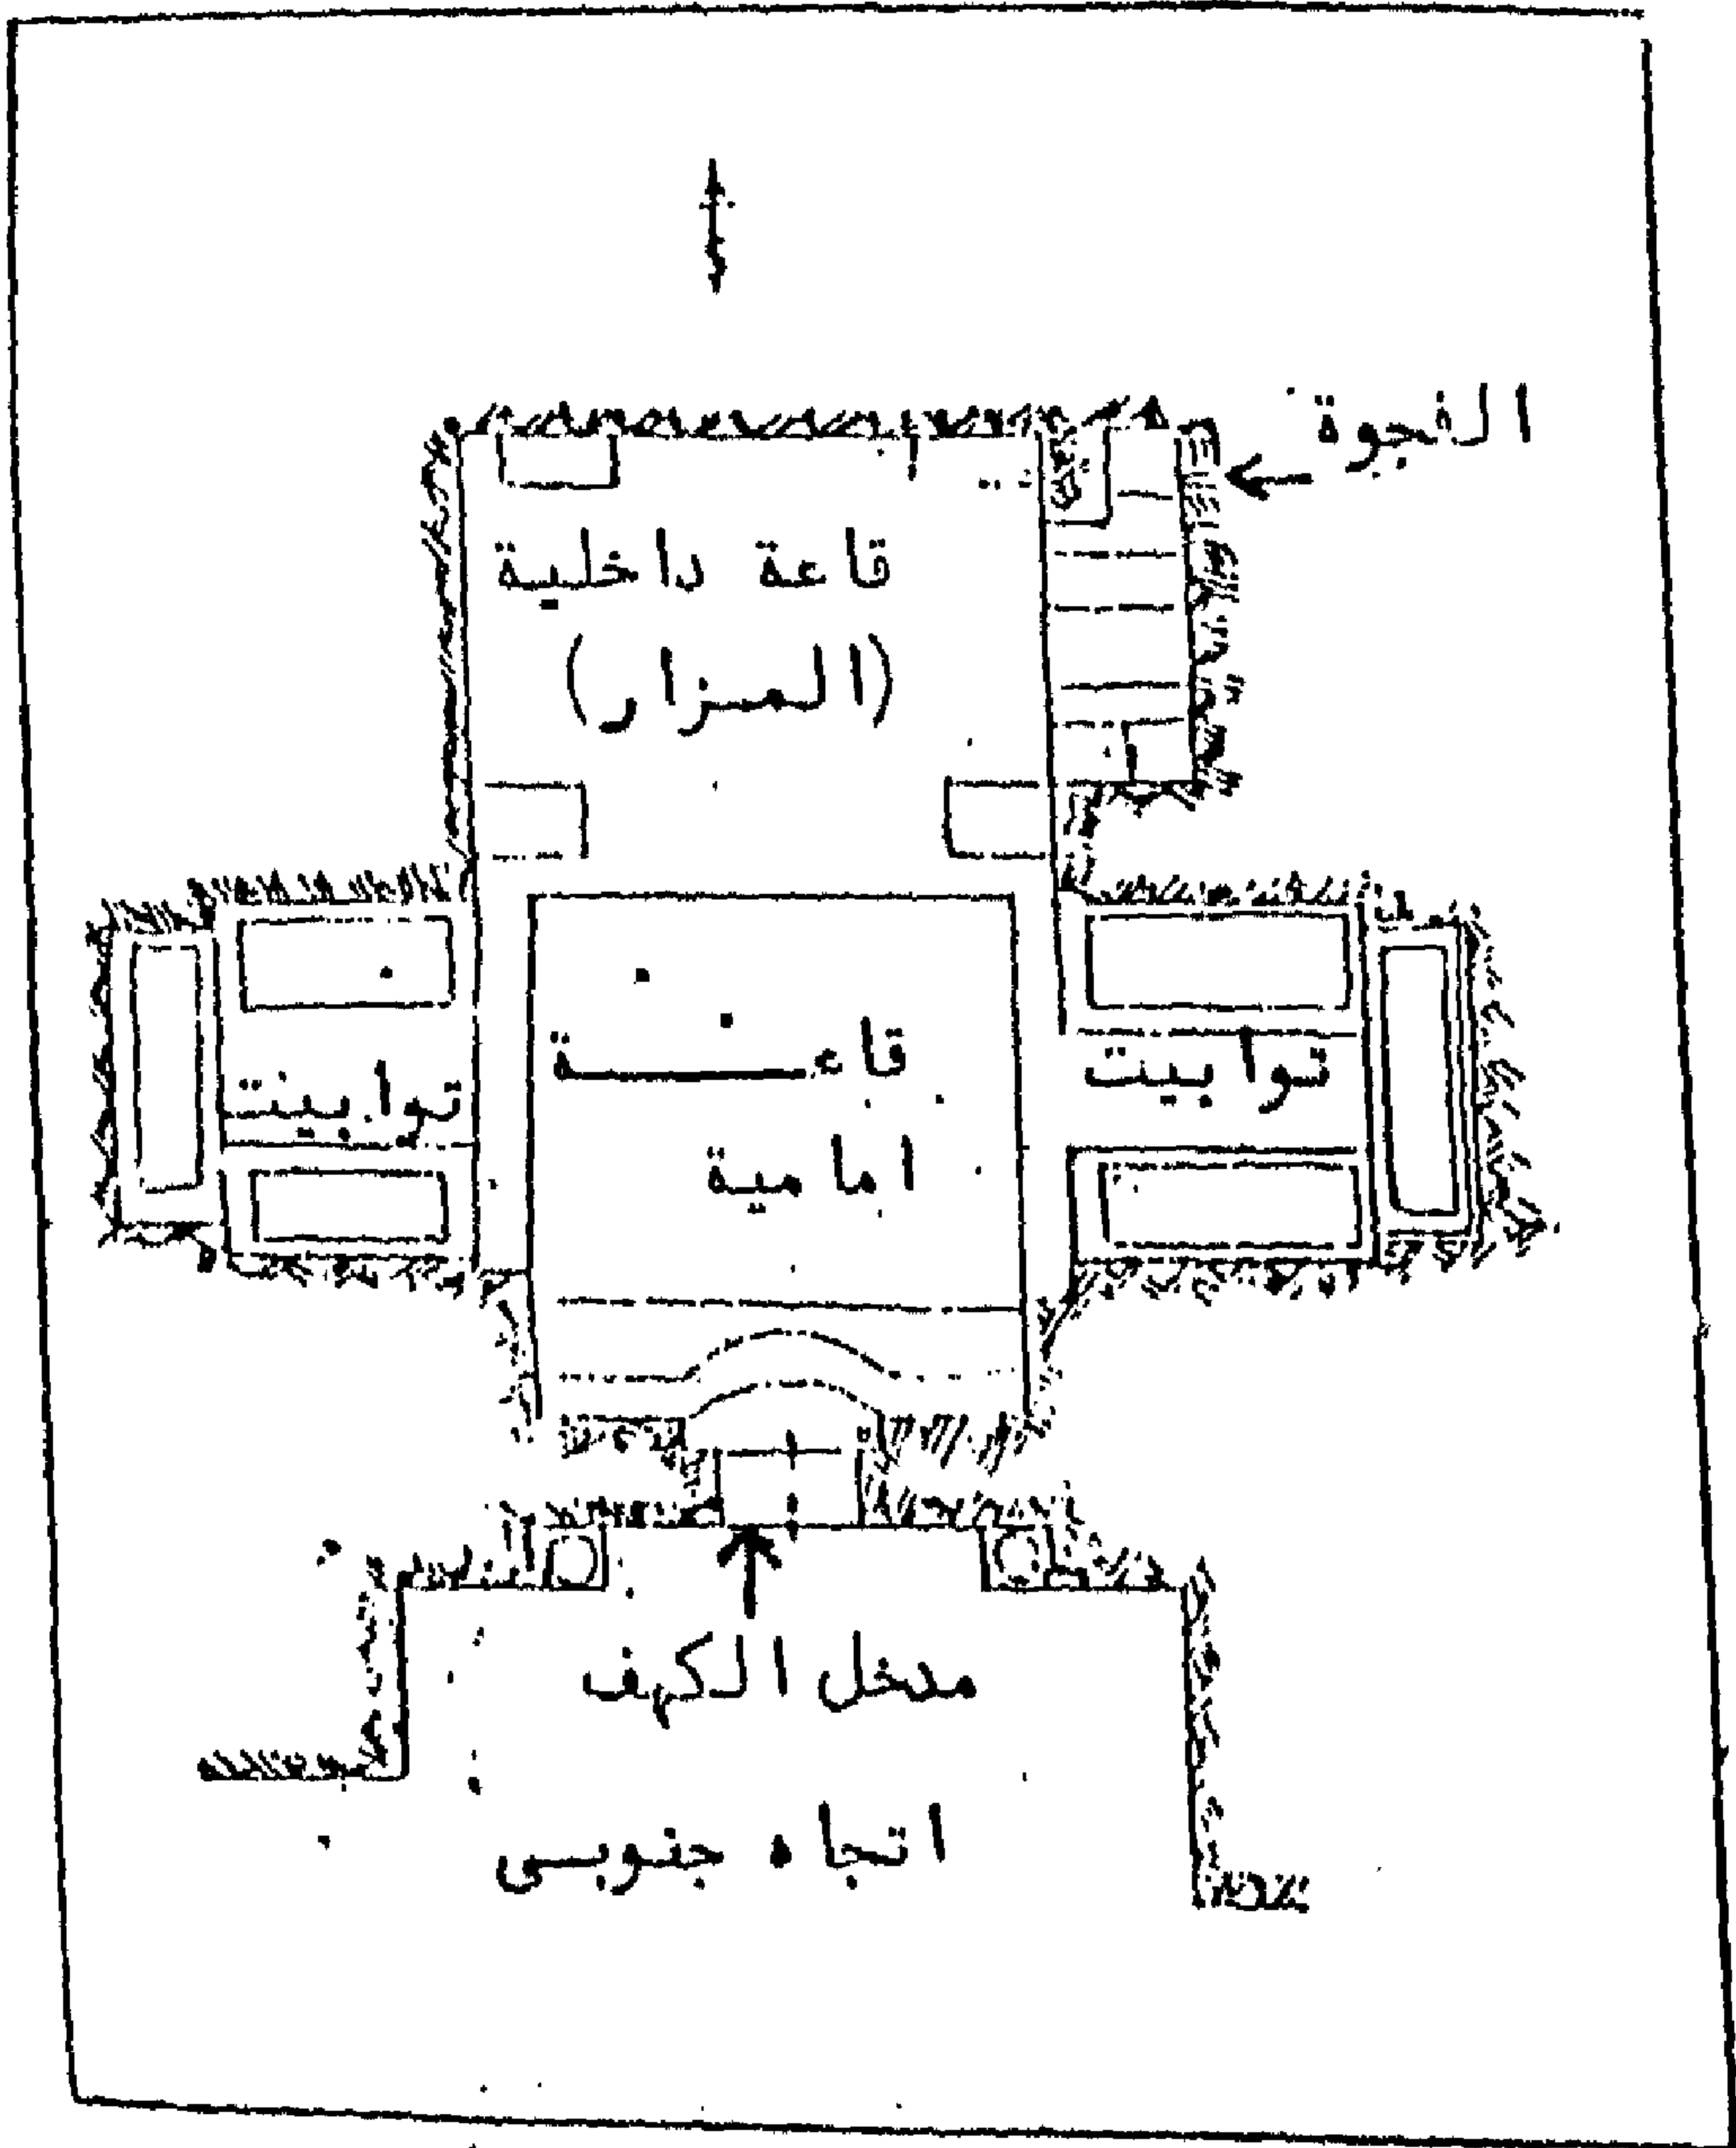 الفجوة
قاعة داخلية
(المزار)
توابيت
قاعــــة
امامية
توابيت
مدخل الكهف
اتجاه جنوبى